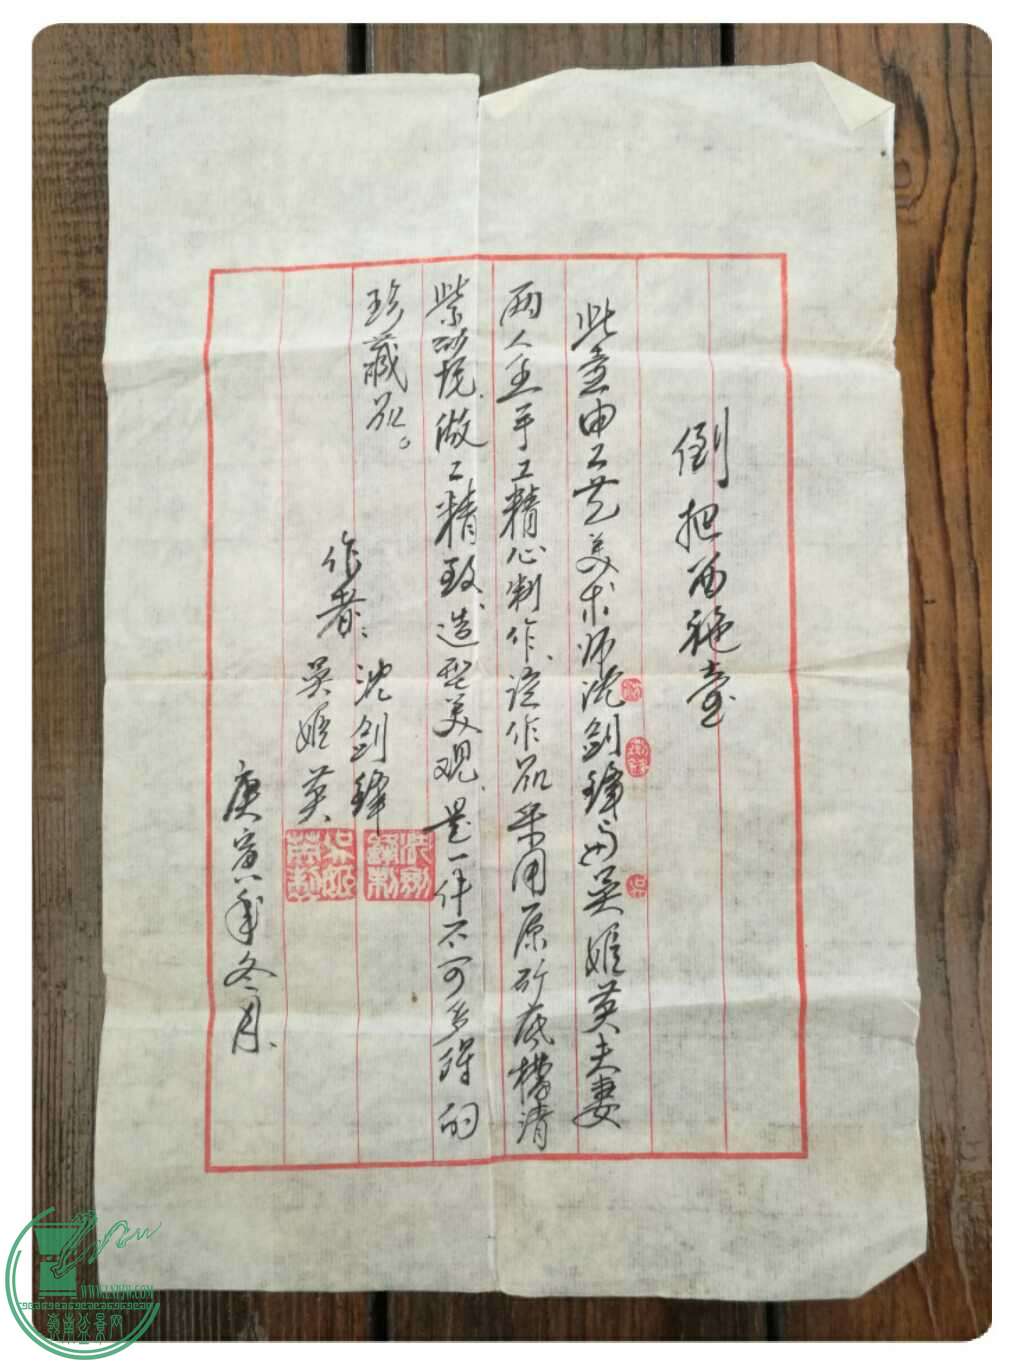 倒把西施壶
此壶由工艺美术师沈剑锋与吴姬英夫妻
两人全手工精心制作、该作品采用原矿底槽清
紫砂泥、做工精致、造型美观、是一件不可多得的
珍藏品。
作者：沈剑锋
吴姬英
庚寅年冬月、
沈
剑锋
吴
WWW.LNBJW.COM
岭南盆景网